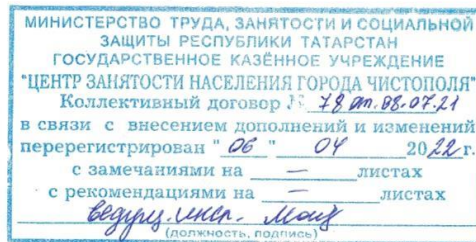 МИНИСТЕРСТВО ТРУДА, ЗАНЯТОСТИ И СОЦИАЛЬНОЙ
ЗАЩИТЫ РЕСПУБЛИКИ ТАТАРСТАН
ГОСУДАРСТВЕННОЕ КАЗЁННОЕ УЧРЕЖДЕНИЕ
"ЦЕНТР ЗАНЯТОСТИ НАСЕЛЕНИЯ ГОРОДА ЧИСТОПОЛЯ"
Коллективный договор № 78 от 08.07.21
в связи с внесением дополнений и изменений
перерегистрирован "06" 04 2022 г.
с замечаниями на — листах
с рекомендациями на — листах
ведущ. инсп.
(должность, подпись)